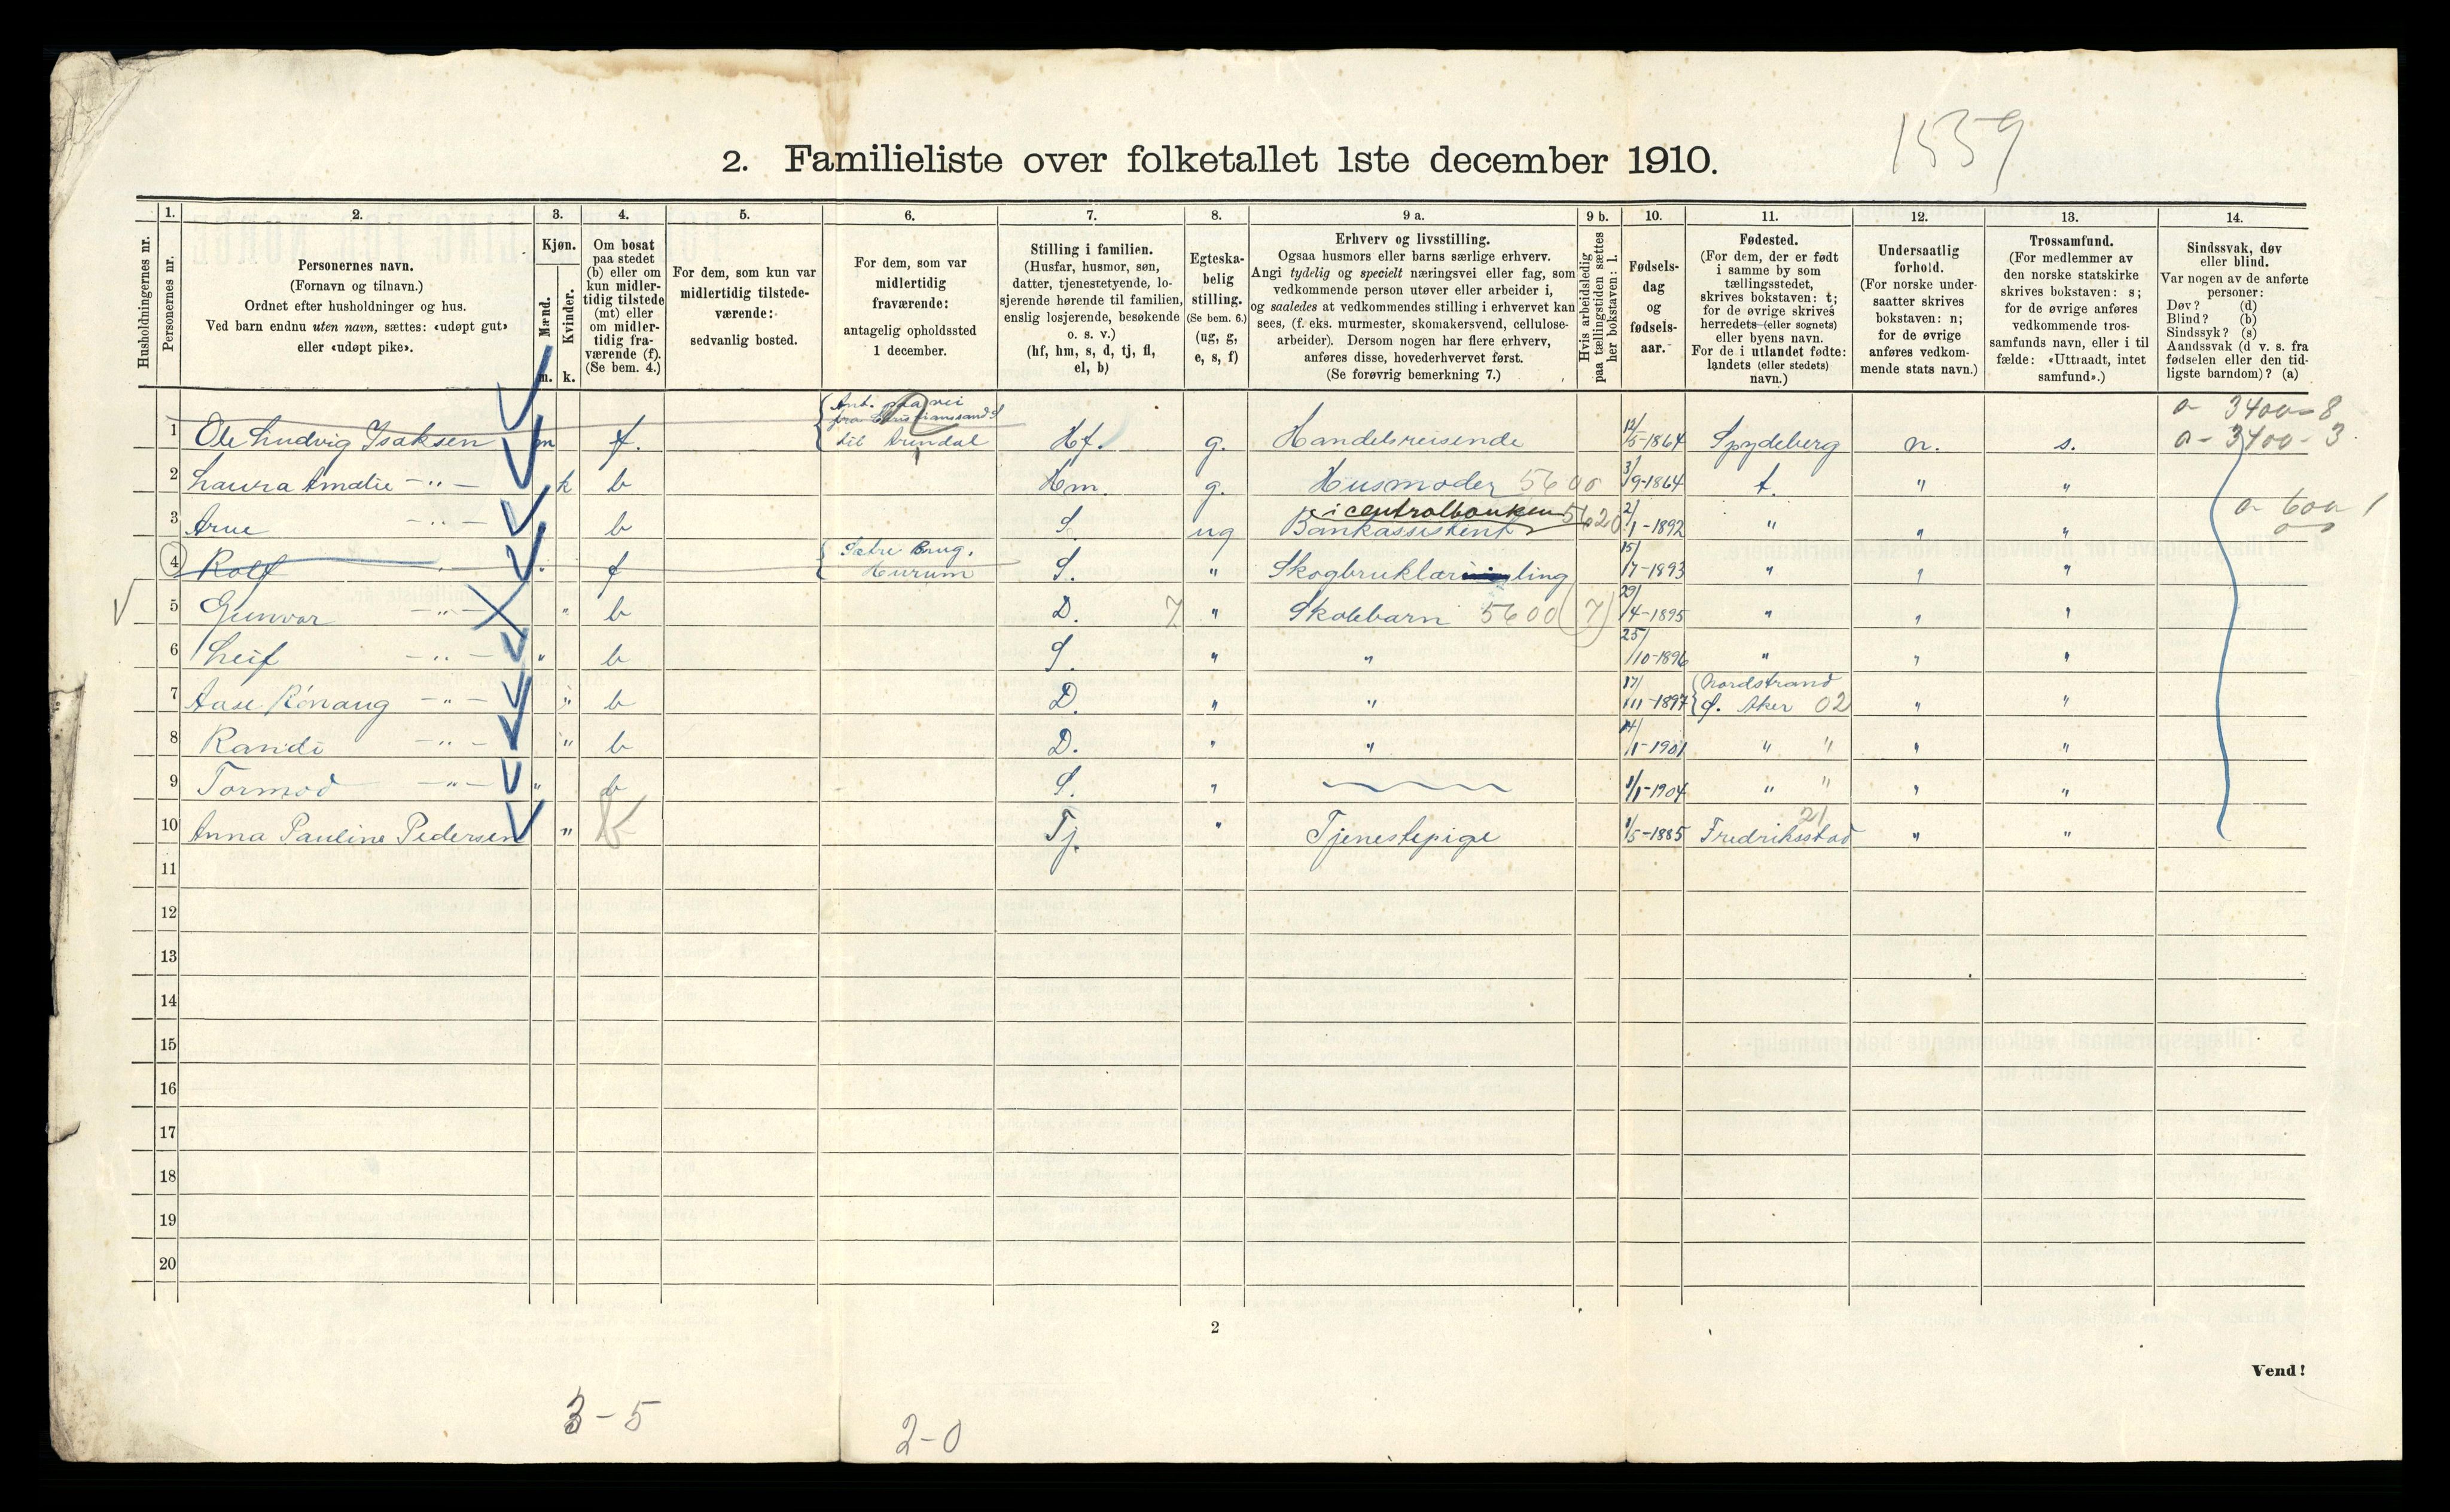 1559
2. Familieliste over folketallet 1ste december 1910.
Husholdningernes nr.
1.
Personernes nr.
2.
Personernes navn.
(Fornavn og tilnavn.)
Ordnet efter husholdninger og hus.
Ved barn endnu uten navn, sættes: «udøpt gut»
eller «udøpt pike».
3.
Kjøn.
Mænd.
Kvinder.
m. k.
4.
Om bosat
paa stedet
(b) eller om
kun midler-
tidig tilstede
(mt) eller
om midler-
tidig fra-
værende (f).
(Se bem. 4.)
5.
For dem, som kun var
midlertidig tilstede-
værende:
sedvanlig bosted.
6.
For dem, som var
midlertidig
fraværende:
antagelig opholdssted
1 december.
7.
Stilling i familien.
(Husfar, husmor, søn,
datter, tjenestetyende, lo-
sjerende hørende til familien,
enslig losjerende, besøkende
o. s. v.)
(hf, hm, s, d, tj, fl,
el, b)
8.
Egteska-
belig
stilling.
(Se bem. 6.)
(ug, g,
e, s, f)
9 a.
Erhverv og livsstilling.
Ogsaa husmors eller barns særlige erhverv.
Angi tydelig og specielt næringsvei eller fag, som
vedkommende person utøver eller arbeider i,
og saaledes at vedkommendes stilling i erhvervet kan
sees, (f. eks. murmester, skomakersvend, cellulose-
arbeider). Dersom nogen har flere erhverv,
anføres disse, hovederhvervet først.
(Se forøvrig bemerkning 7.)
9 b.
Hvis arbeidsledig
paa tællingstiden sættes
her bokstaven: l.
10.
Fødsels-
dag
og
fødsels-
aar.
11.
Fødested.
(For dem, der er født
i samme by som
tællingsstedet,
skrives bokstaven: t;
for de øvrige skrives
herredets (eller sognets)
eller byens navn.
For de i utlandet fødte:
landets (eller stedets)
navn.)
12.
Undersaatlig
forhold.
(For norske under-
saatter skrives
bokstaven: n;
for de øvrige
anføres vedkom-
mende stats navn.)
13.
Trossamfund.
(For medlemmer av
den norske statskirke
skrives bokstaven: s;
for de øvrige anføres
vedkommende tros-
samfunds navn, eller i til
fælde: «Uttraadt, intet
samfund».)
14.
Sindssvak, døv
eller blind.
Var nogen av de anførte
personer:
Døv? (d)
Blind? (b)
Sindssyk? (s)
Aandssvak (d v. s. fra
fødselen eller den tid-
ligste barndom)? (a)
Ant. paa vei
fra Christianssand S
a- 3400-8
1 Ole Ludvig Isaksen m f. til Arendal Hf. g. Handelsreisende 12/5-1864 Spydeberg n. s. a- 3400-3
2 Laura Amalie -"- k b Hm. g. Husmoder 5600 3/9-1864 t. " "
i centralbanken 5620 a- 600 1
3 Arne -"- b S. ug Bankassistent 2/1-1892 " " "
Sætre Brug.
4 Rolf " " f Hurum S. " Skogbruklærling 15/7-1893 " " "
5 Gunvor -"- " b D. 7 " Skolebarn 5600 (7) 29/4-1895 " " "
6 Leif -"- " b S. " " 25/10-1896 " " "
Nordstrand
7 Aase Rönaug -"- " b D. " " 17/11-1897 Ø. Aker 02 " "
8 Randi -"- " b D. " " 14/1-1901 " " " "
9 Tormod -"- " b S. " 1/1-1904 " " " "
21
10 Anna Pauline Pedersen " b Tj. " Tjenestepige 1/5-1885 Fredriksstad " "
11
12
13
14
15
16
17
18
19
20
2
Vend!
3-5
2-0